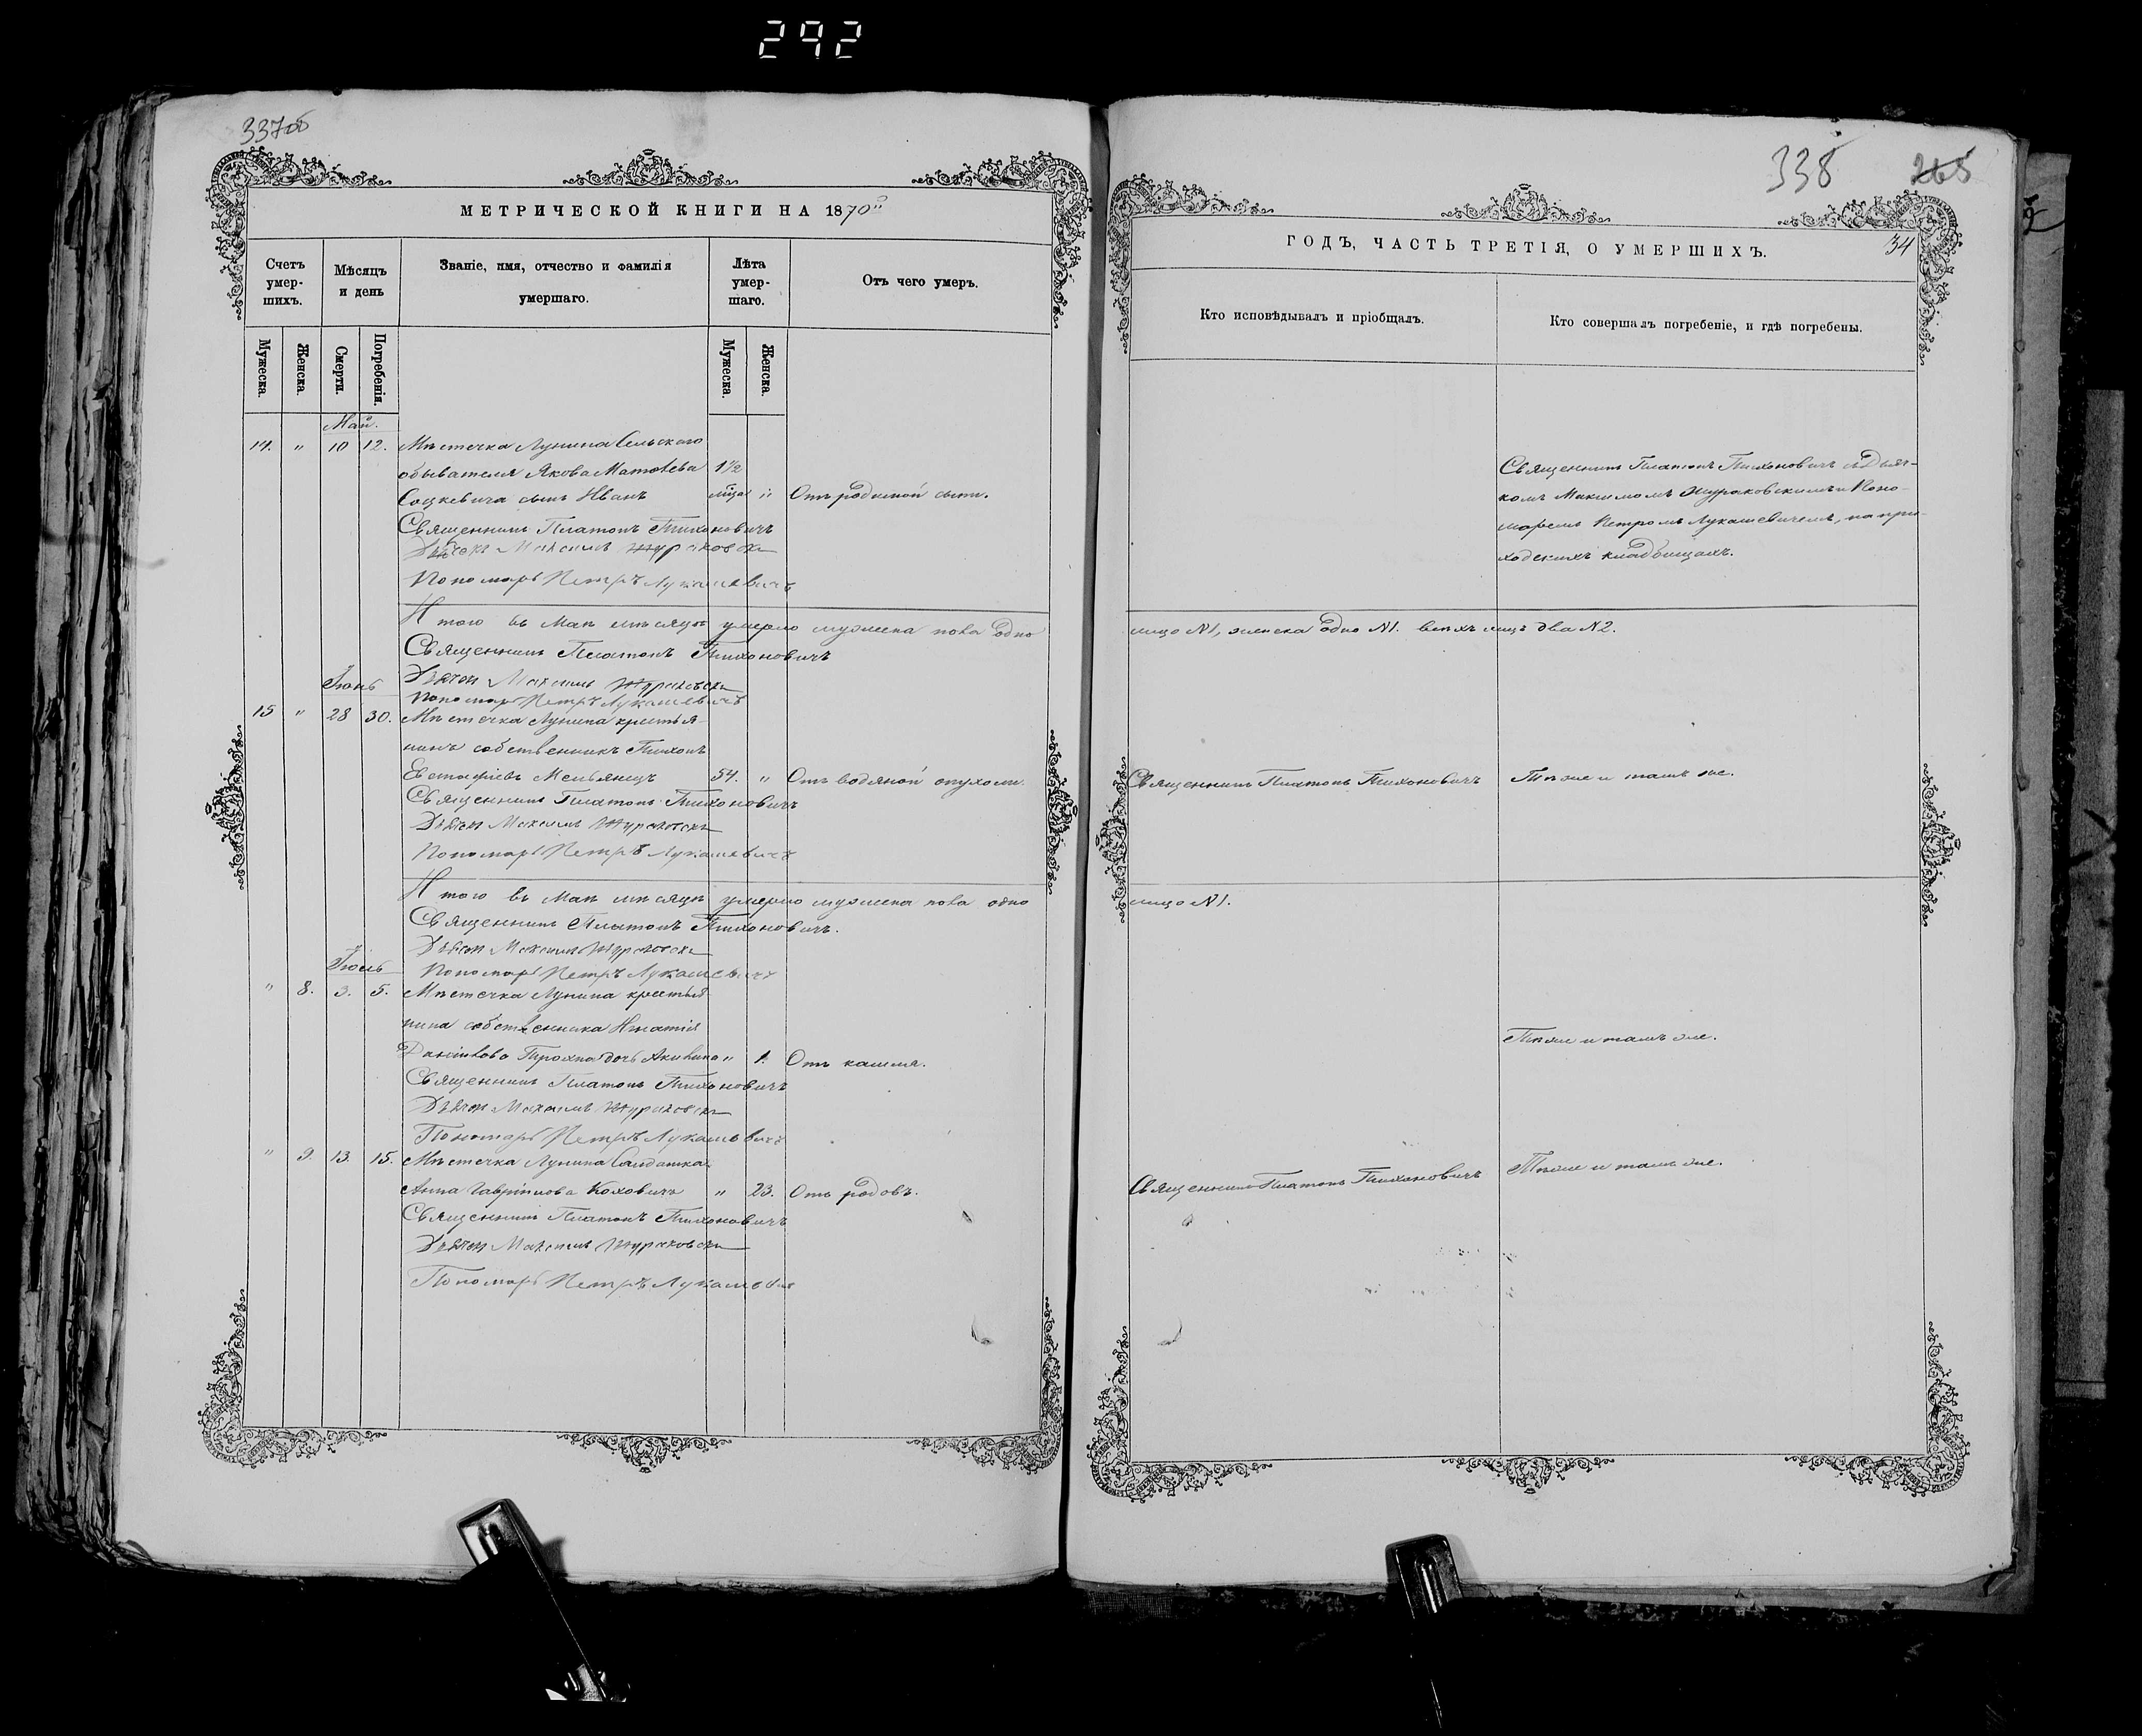 292
337об
МЕТРИЧЕСКОЙ КНИГИ НА 1870й
Счетъ умер-шихъ.
Мѣсяцъ и день
Званіе, имя, отчество и фамилія умершаго.
Лѣта умер-шаго.
Отъ чего умеръ.
Мужеска.
Женска.
Смерти.
Погребенія.
Мужеска.
Женска.
Май.
14. " 10 12. Мѣстечка Лунина Сельскаго
обывателя Якова Матвѣева 1½
Соцкевича сынъ Иванъ мѣсц. " Отъ родимой сыпи.
Священникъ Платонъ Тихоновичъ
Дьячекъ Максимъ Жураковскій
Пономарь Петръ Лукашевичъ
Итого въ Маѣ мѣсяцѣ умерло мужеска пола одно
Священникъ Платонъ Тихоновичъ
Дьячекъ Максимъ Жураковскій
Іюнь
Пономарь Петръ Лукашевичъ
15 " 28 30. Мѣстечка Лунина крестья-
нинъ собственникъ Тихонъ
Евстафіевъ Мельянецъ 54. " Отъ водяной опухоли.
Священникъ Платонъ Тихоновичъ
Дьячекъ Максимъ Жураковскій
Пономарь Петръ Лукашевичъ
Итого въ Маѣ мѣсяцѣ умерло мужеска пола одно
Священникъ Платонъ Тихоновичъ.
Дьячекъ Максимъ Жураковскій
Іюль
Пономарь Петръ Лукашевичъ
" 8. 3. 5. Мѣстечка Лунина крестья
нина собственника Игнатія
дочь Акилина " 1. Отъ кашля.
Священникъ Платонъ Тихоновичъ
Дьячекъ Максимъ Жураковскій
Пономарь Петръ Лукашевичъ
" 9. 13. 15. Мѣстечка Лунина Солдатка
Анна Гавріилова Коховичъ " 23. Отъ родовъ.
Священникъ Платонъ Тихоновичъ
Дьячекъ Максимъ Жураковскій
Пономарь Петръ Лукашевичъ
338 265
ГОДЪ, ЧАСТЬ ТРЕТІЯ, О УМЕРШИХЪ.
34
Кто исповѣдывалъ и пріобщалъ.
Кто совершалъ погребеніе, и гдѣ погребены.
Священникъ Платонъ Тихоновичъ съ Дьяч-
комъ Максимомъ Жураковскимъ и Поно-
маремъ Петромъ Лукашевичемъ, на при-
ходскихъ кладбищахъ.
лицо №1, женска одно №1. всѣхъ лицъ два №2.
Священникъ Платонъ Тихоновичъ Тѣже и тамъ же.
лицо №1.
Тѣже и тамъ же.
Священникъ Платонъ Тихоновичъ Тѣже и тамъ же.